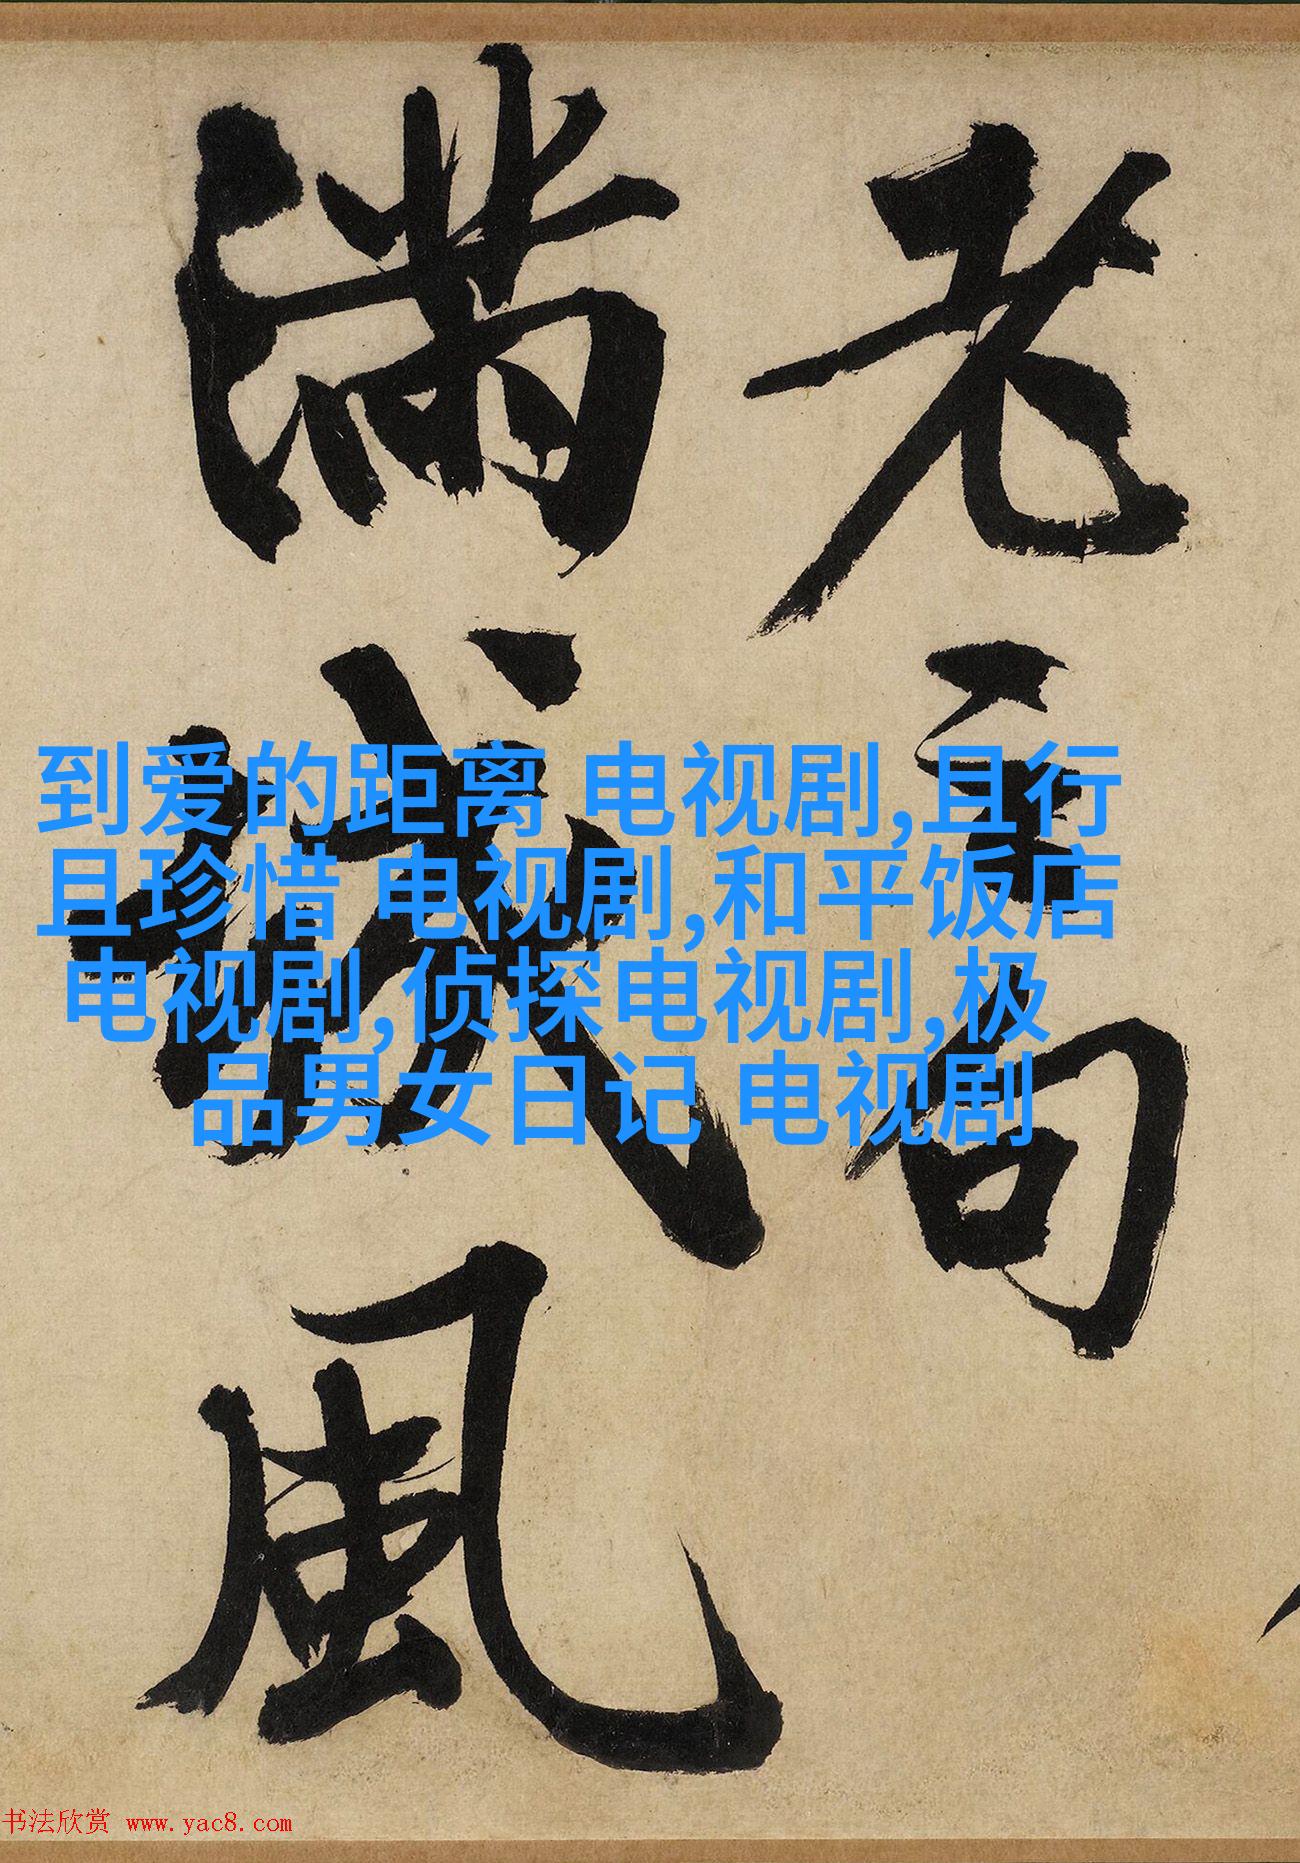 老
句
滿城風
到爱的距离 电视剧,且行
且珍惜 电视剧,和平饭店
电视剧,侦探电视剧,极
品男女日记 电视剧
书法欣赏 www.yac8.com